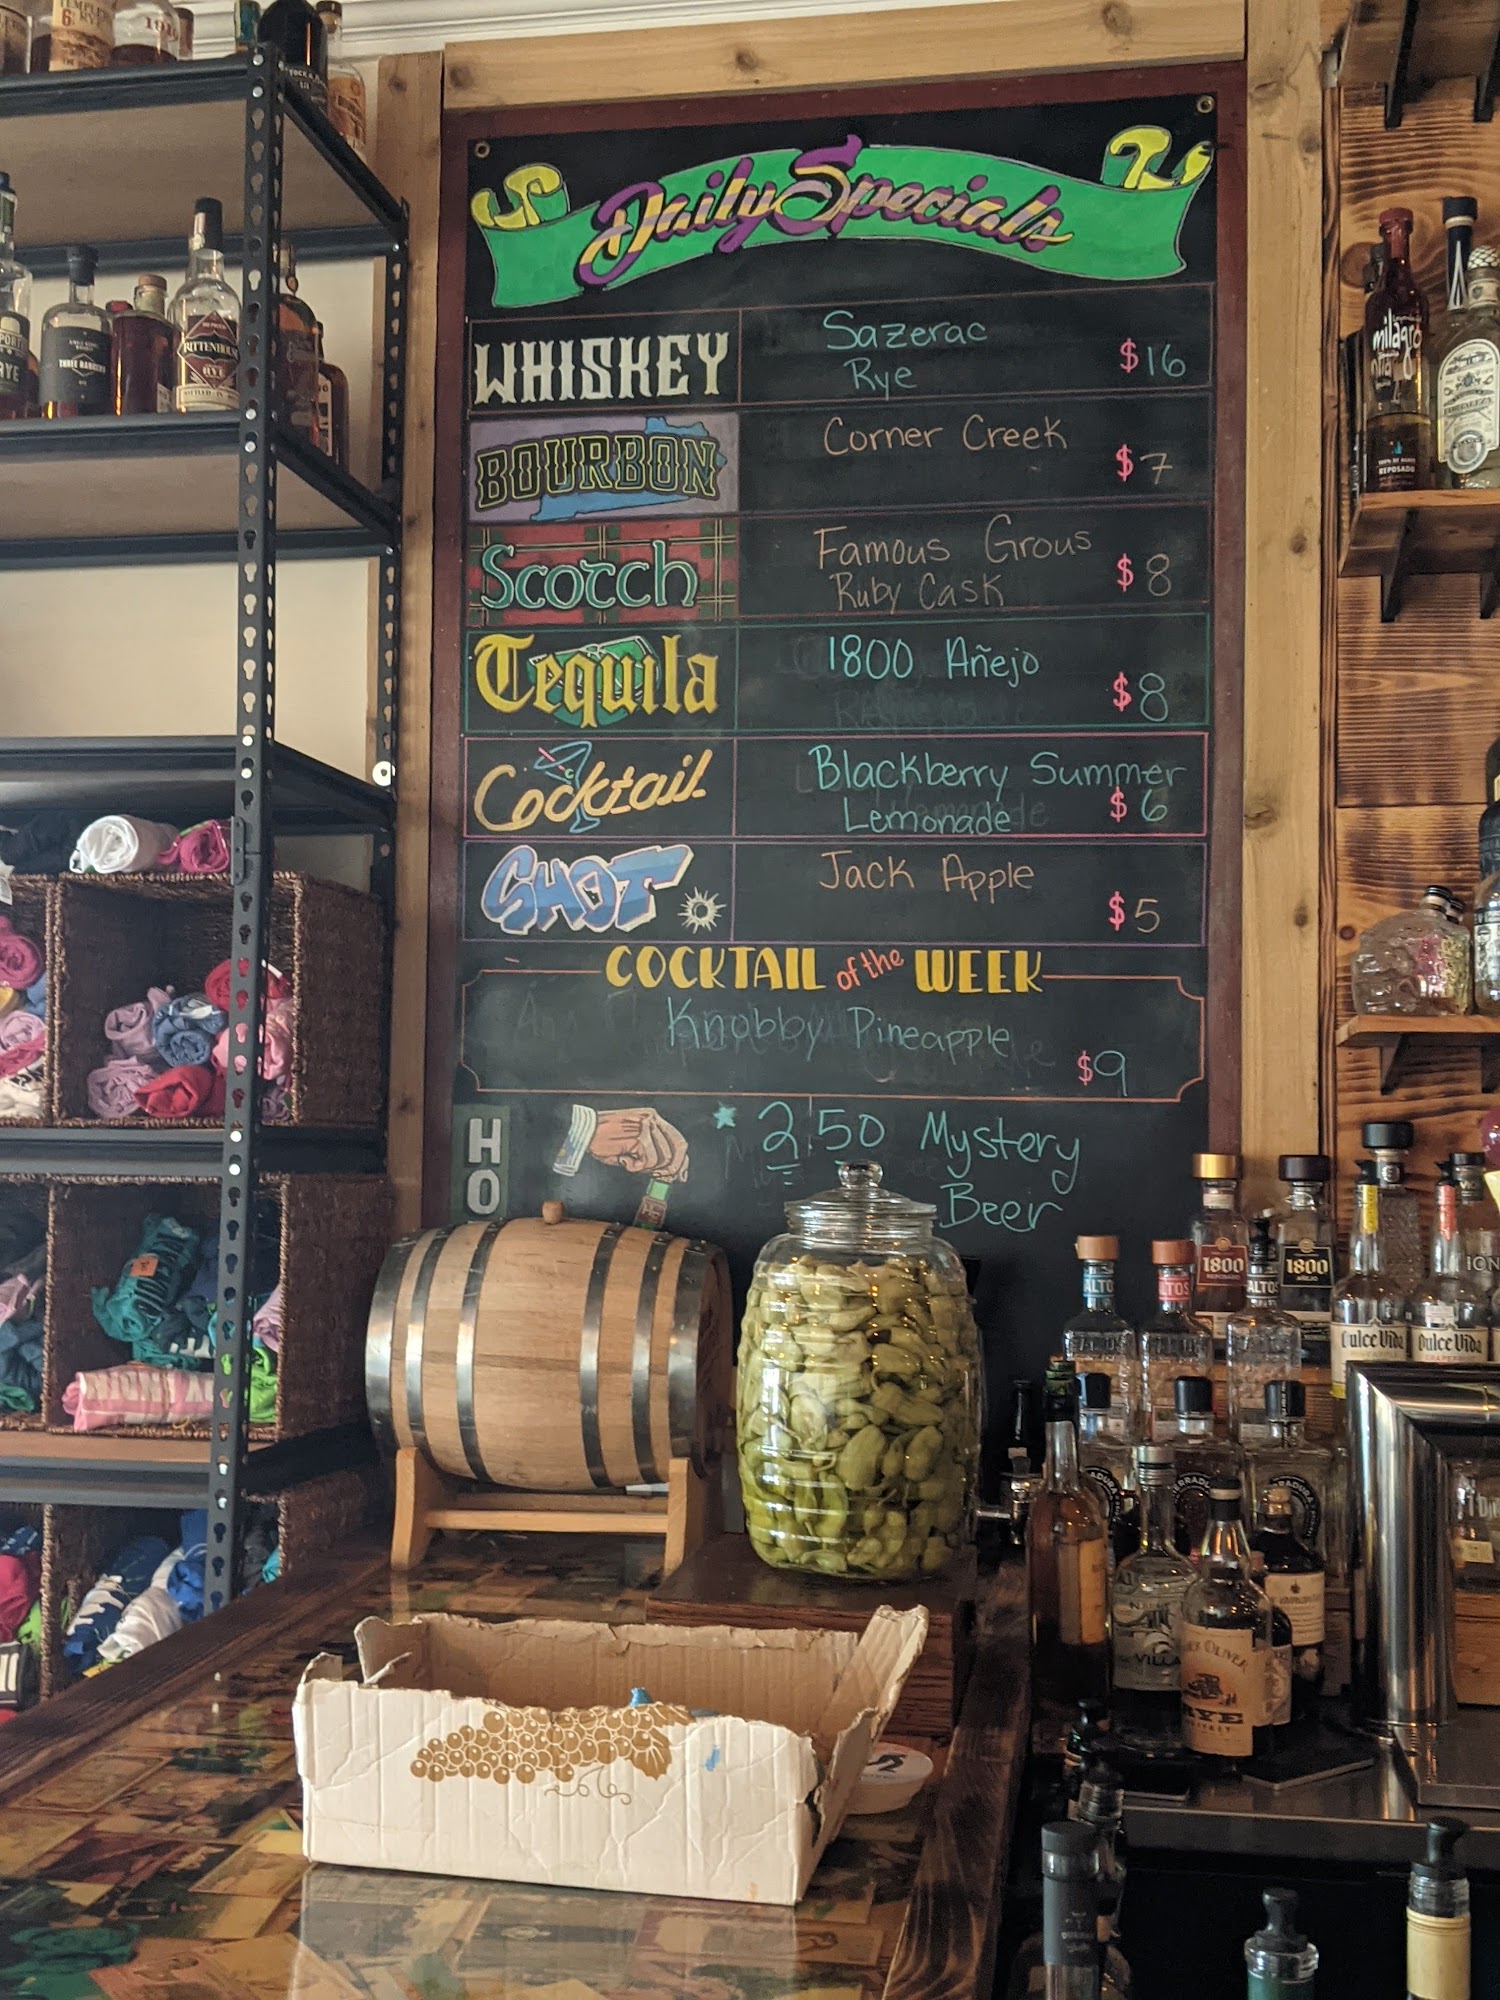 Daily Specials
WHISKEY
Sazerac
Rye
$16
BOURBON
Corner Creek
$7
Scotch
Famous Grous
Ruby Cask
$8
Tequila
1800 Añejo
$8
Cocktail
Blackberry Summer
Lemonade
$6
SHOT
Jack Apple
$5
COCKTAIL of the WEEK
Knobby Pineapple
$9
HO
2.50 Mystery
Beer
RITTENHOUSE
RYE
THREE RANGERS
milagro
REPOSADO
1800
REPOSADO
1800
AÑEJO
ALTOS
ALTOS
ALTOS
Dulce Vida
Dulce Vida
RYE